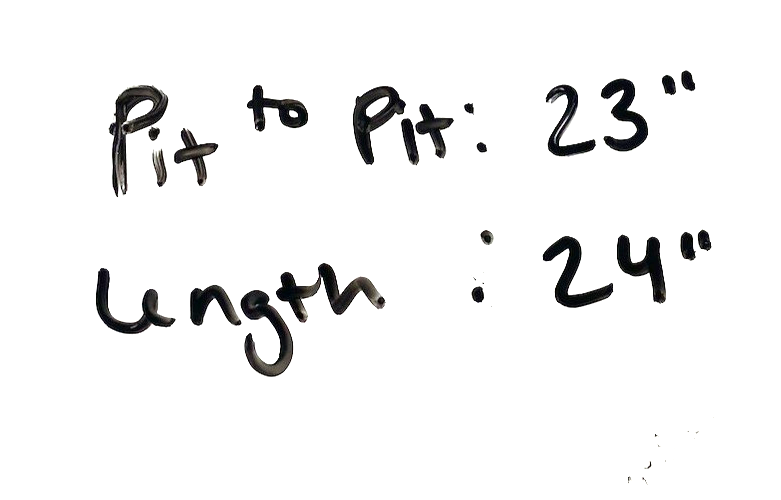 Pit to Pit: 23"
Length : 24"